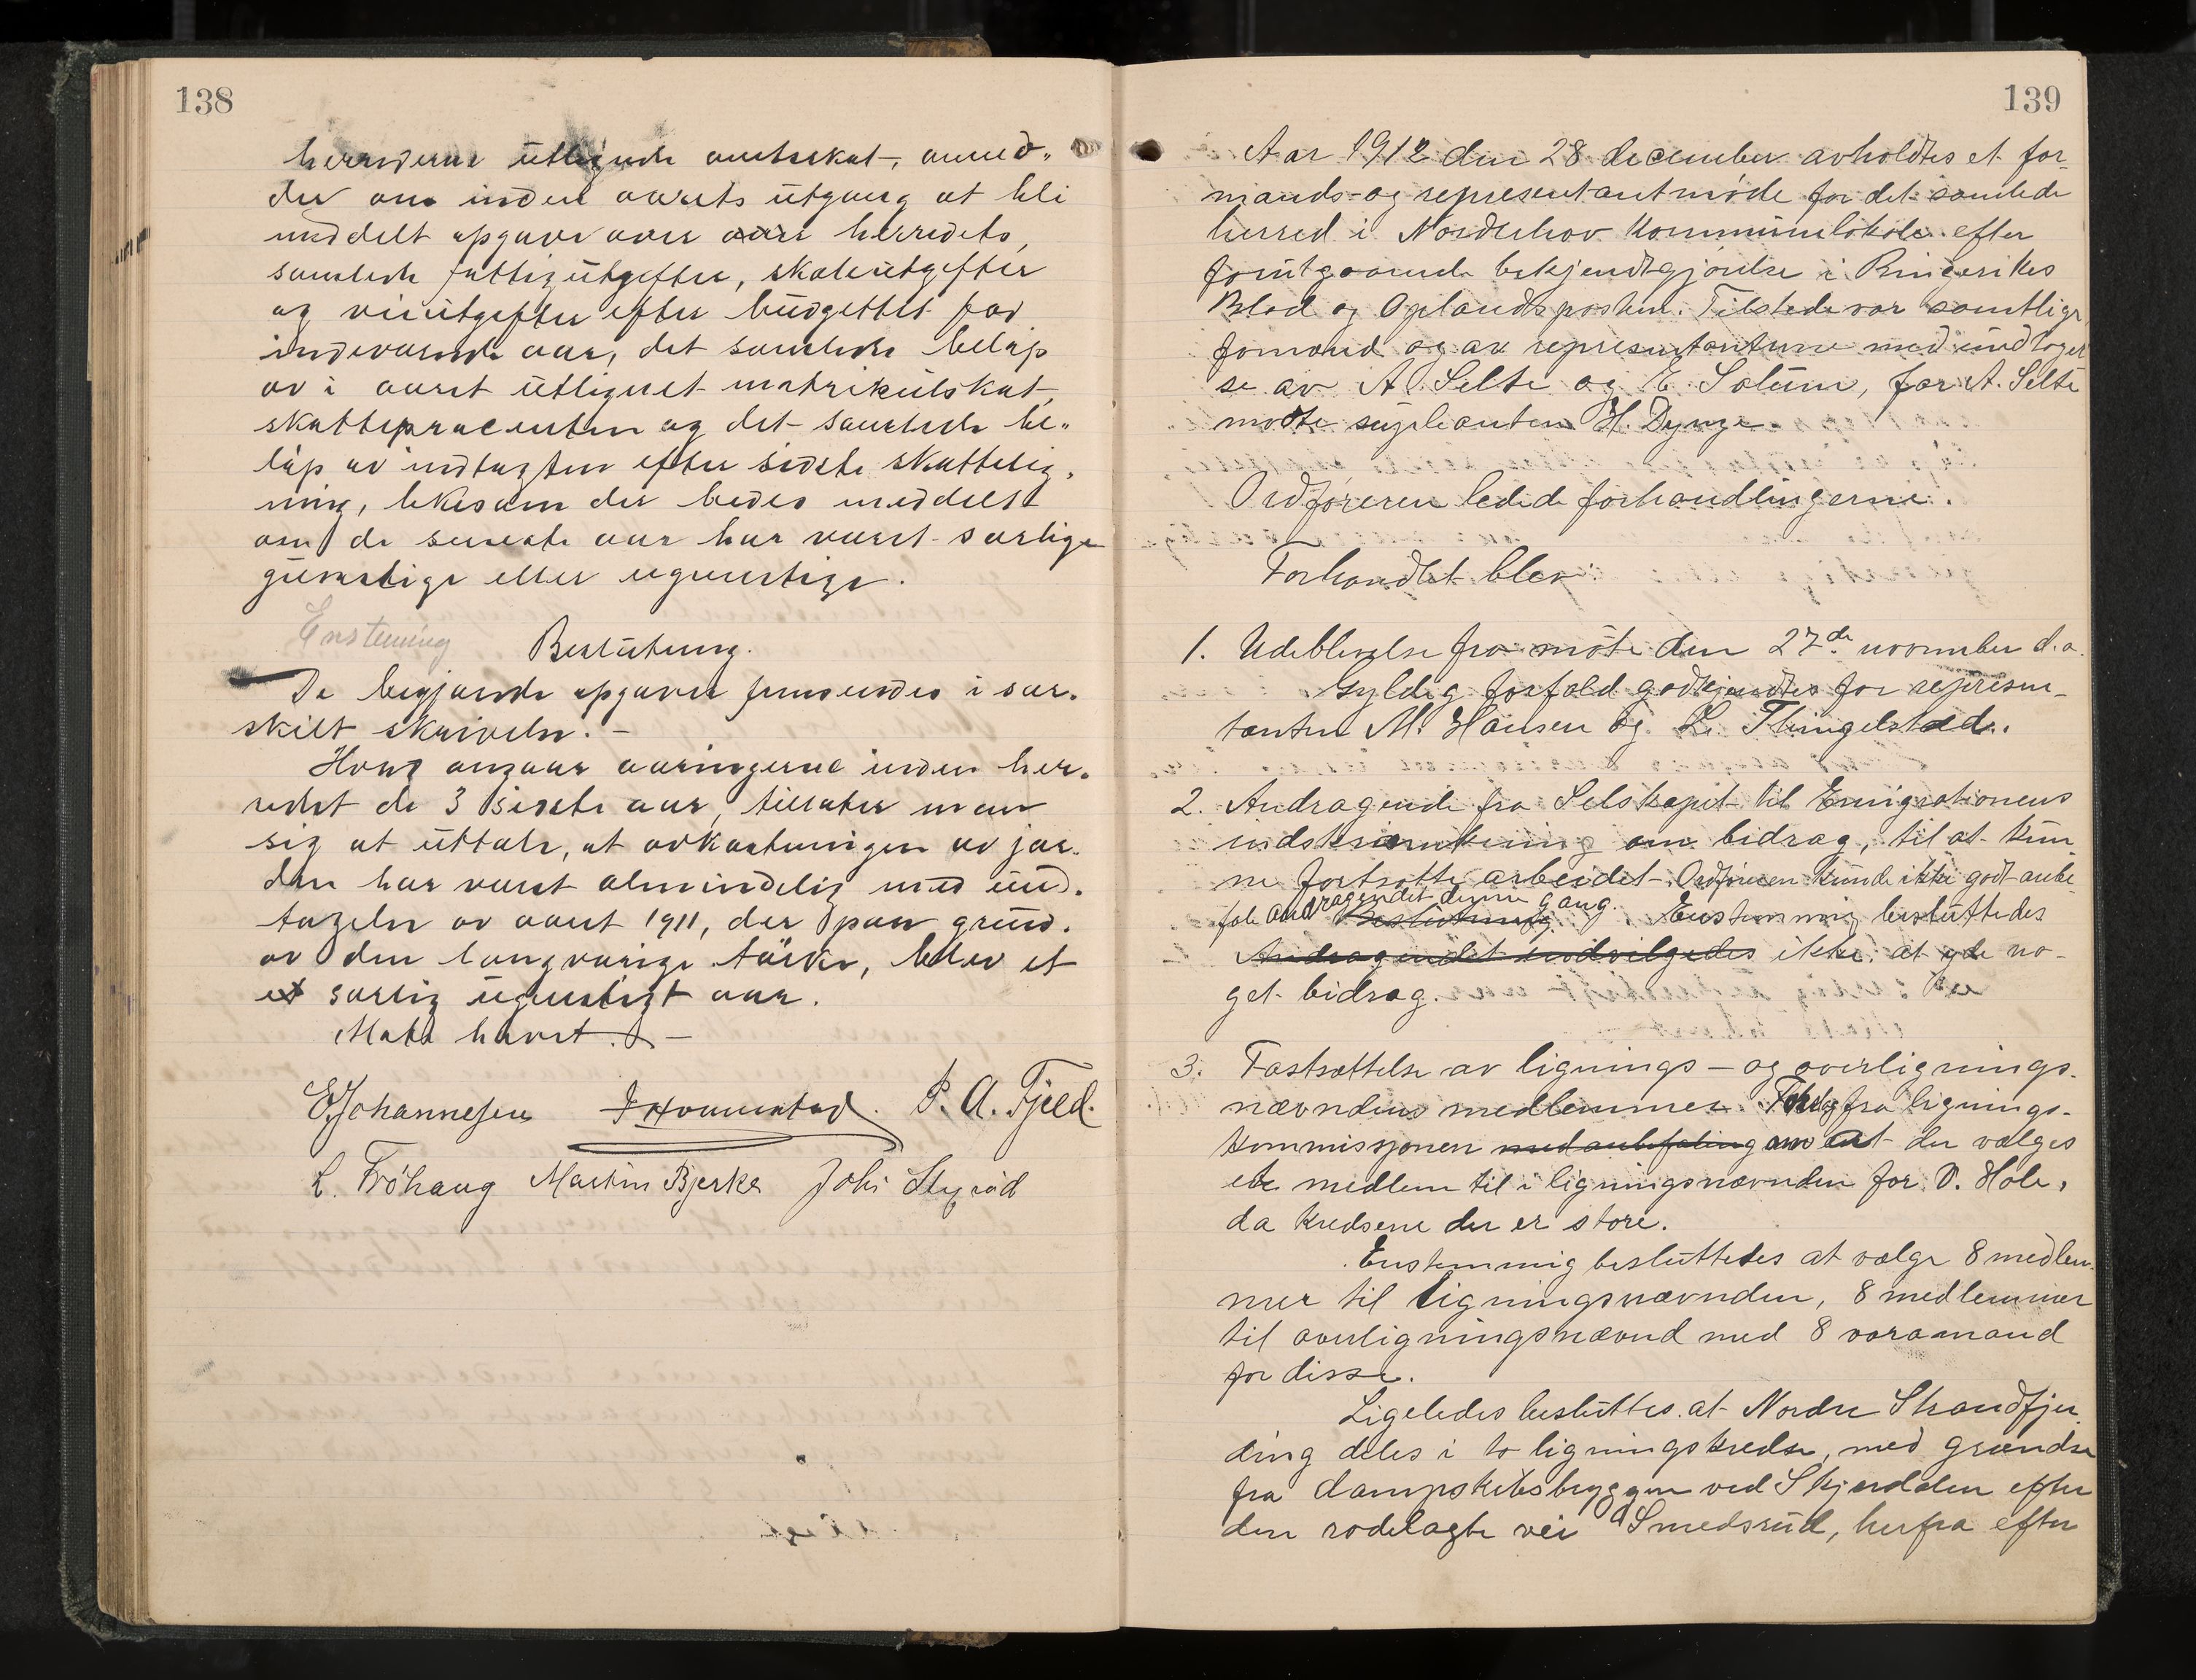 138
herrederne utlignede amtsskat, anmo-
der om inden aarets utgang at bli
meddelt opgave over herredets
samlede fattigutgifter, skoleutgifter
og veiutgifter efter budgettet for
indeværende aar, det samlede beløp
av i aaret utlignet matrikulskat,
skatteprocenten og det samlede be-
løp av indtægten efter sidste skattelig-
ning, likesom der bedes meddelt
om de seneste aar har været særlige
gunstige eller ugunstige.
Enstemig Beslutning.
De begjærede opgaver fremsendes i sær-
skilt skrivelse. -
Hvad angaar aaringerne inden her-
redet de 3 sidste aar, tillater man
sig at uttale, at avkastningen av jor-
den har været almindelig med und-
tagelse av aaret 1911, der paa grund
av den langvarige tørke, blev et
et særlig ugunstigt aar.
Møtet hævet. -
E. Johannesen P. A. Fjeld.
L. Fröhaug Martin Bjerke Johs
139
Aar 1912 den 28 december avholdtes et for-
mands- og representantmöde for det samlede
herred i Norderhov Kommunelokale efter
forutgaaende bekjendtgjörelse i Ringerikes
Blad og Oplandsposten. Tilstede var samtlige
formænd og av representanterne med undtagel
se av A. Selte og E. Solum, for A. Selte
mötte supleanten H. Dynge.
Ordföreren ledede forhandlingerne.
Forhandlet blev:
1. Udeblivelse fra möte den 27de november d.a.
Gyldig forfald godkjendtes for represen-
tanten M. Hansen og L. Thingelstad.
2. Andragende fra Selskapet til Emigrationens
indskrænkning om bidrag, til at kun-
ne fortsætte arbeidet. Ordföreren kunde ikke godt anbe-
fale andragendet denne gang. Beslutning Enstemmig besluttedes
Andragendet indvilgedes ikke at yde no-
get bidrag.
3. Fastsættelse av lignings- og overlignings-
nævndens medlemmer. Forslag fra lignings-
kommissjonen med anbefaling om at der vælges
et medlem til i ligningsnævnden for V. Hole,
da kredsene der er store.
Enstemmig besluttedes at vælge 8 medlem-
mer til ligningsnævnden, 8 medlemmer
til overligningsnævnd med 8 varamænd
for disse.
Ligeledes besluttes at Nordre Strandfjer-
ding deles i to ligningskredse, med grændse
fra dampskibsbryggen ved Skjærdalen efter
den rodelagte vei Smedsrud, herfra efter